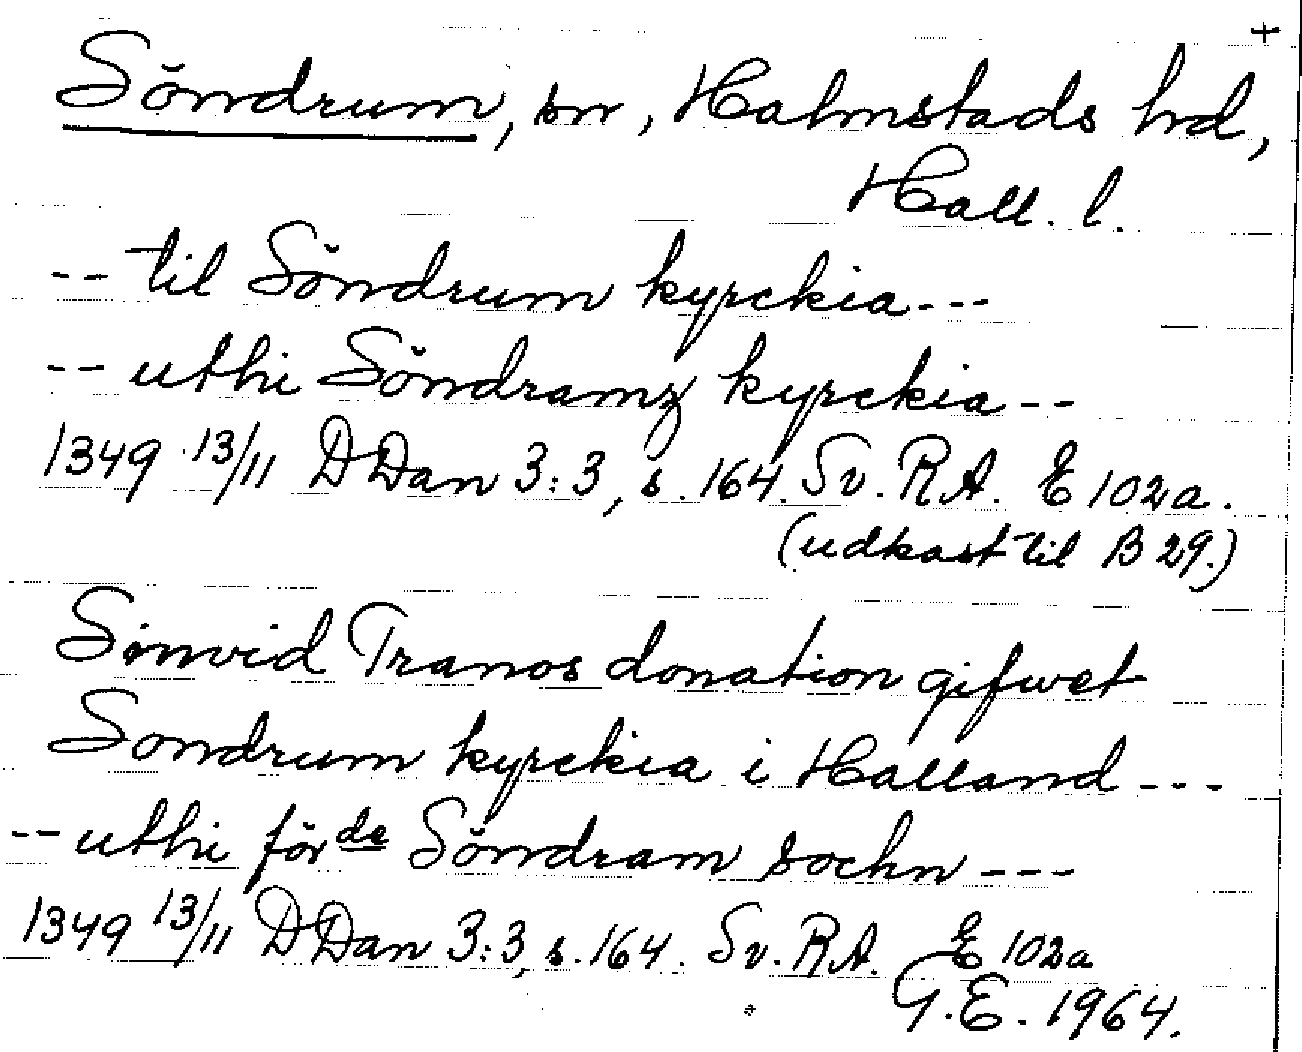 +
Söndrum, sn, Halmstads hrd,
Hall. l.
-- til Söndrum kyrckia ---
-- uthi Söndramz kyrckia --
1349 13/11 DDan 3:3, s. 164. Sv. R.A. E 102a.
(udkast til B 29.)
Sinvid Tranos donation gifwet
Sondrum kyrckia i Halland ---
-- uthi förde Söndram sochn ---
1349 13/11 DDan 3:3, s. 164. Sv. R.A. E 102a
G.E. 1964.